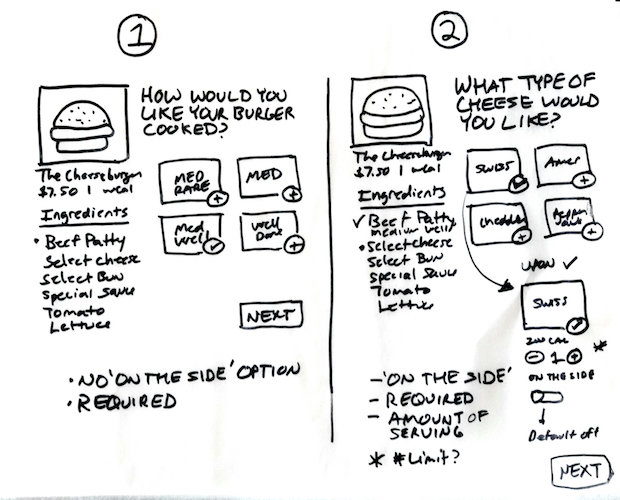 1
HOW WOULD YOU
LIKE YOUR BURGER
COOKED?
The Cheeseburger
$7.50 1 meal
Ingredients
• Beef Patty
Select cheese
Select Bun
Special Sauce
Tomato
Lettuce
MED
RARE
+
MED
+
Med
Well
✓
Well
Done
+
NEXT
• NO 'ON THE SIDE' OPTION
• REQUIRED
2
WHAT TYPE OF
CHEESE WOULD
YOU LIKE?
The Cheeseburger
$7.50 1 meal
Ingredients
✓ Beef Patty
medium well
• Select cheese
Select Bun
Special Sauce
Tomato
Lettuce
SWISS
✓
Amer
+
Cheddar
+
Pepper
+
UPON ✓
SWISS
✓
200 CAL
- 1 + *
ON THE SIDE
Default off
- 'ON THE SIDE'
- REQUIRED
- AMOUNT OF
SERVING
* # Limit?
NEXT